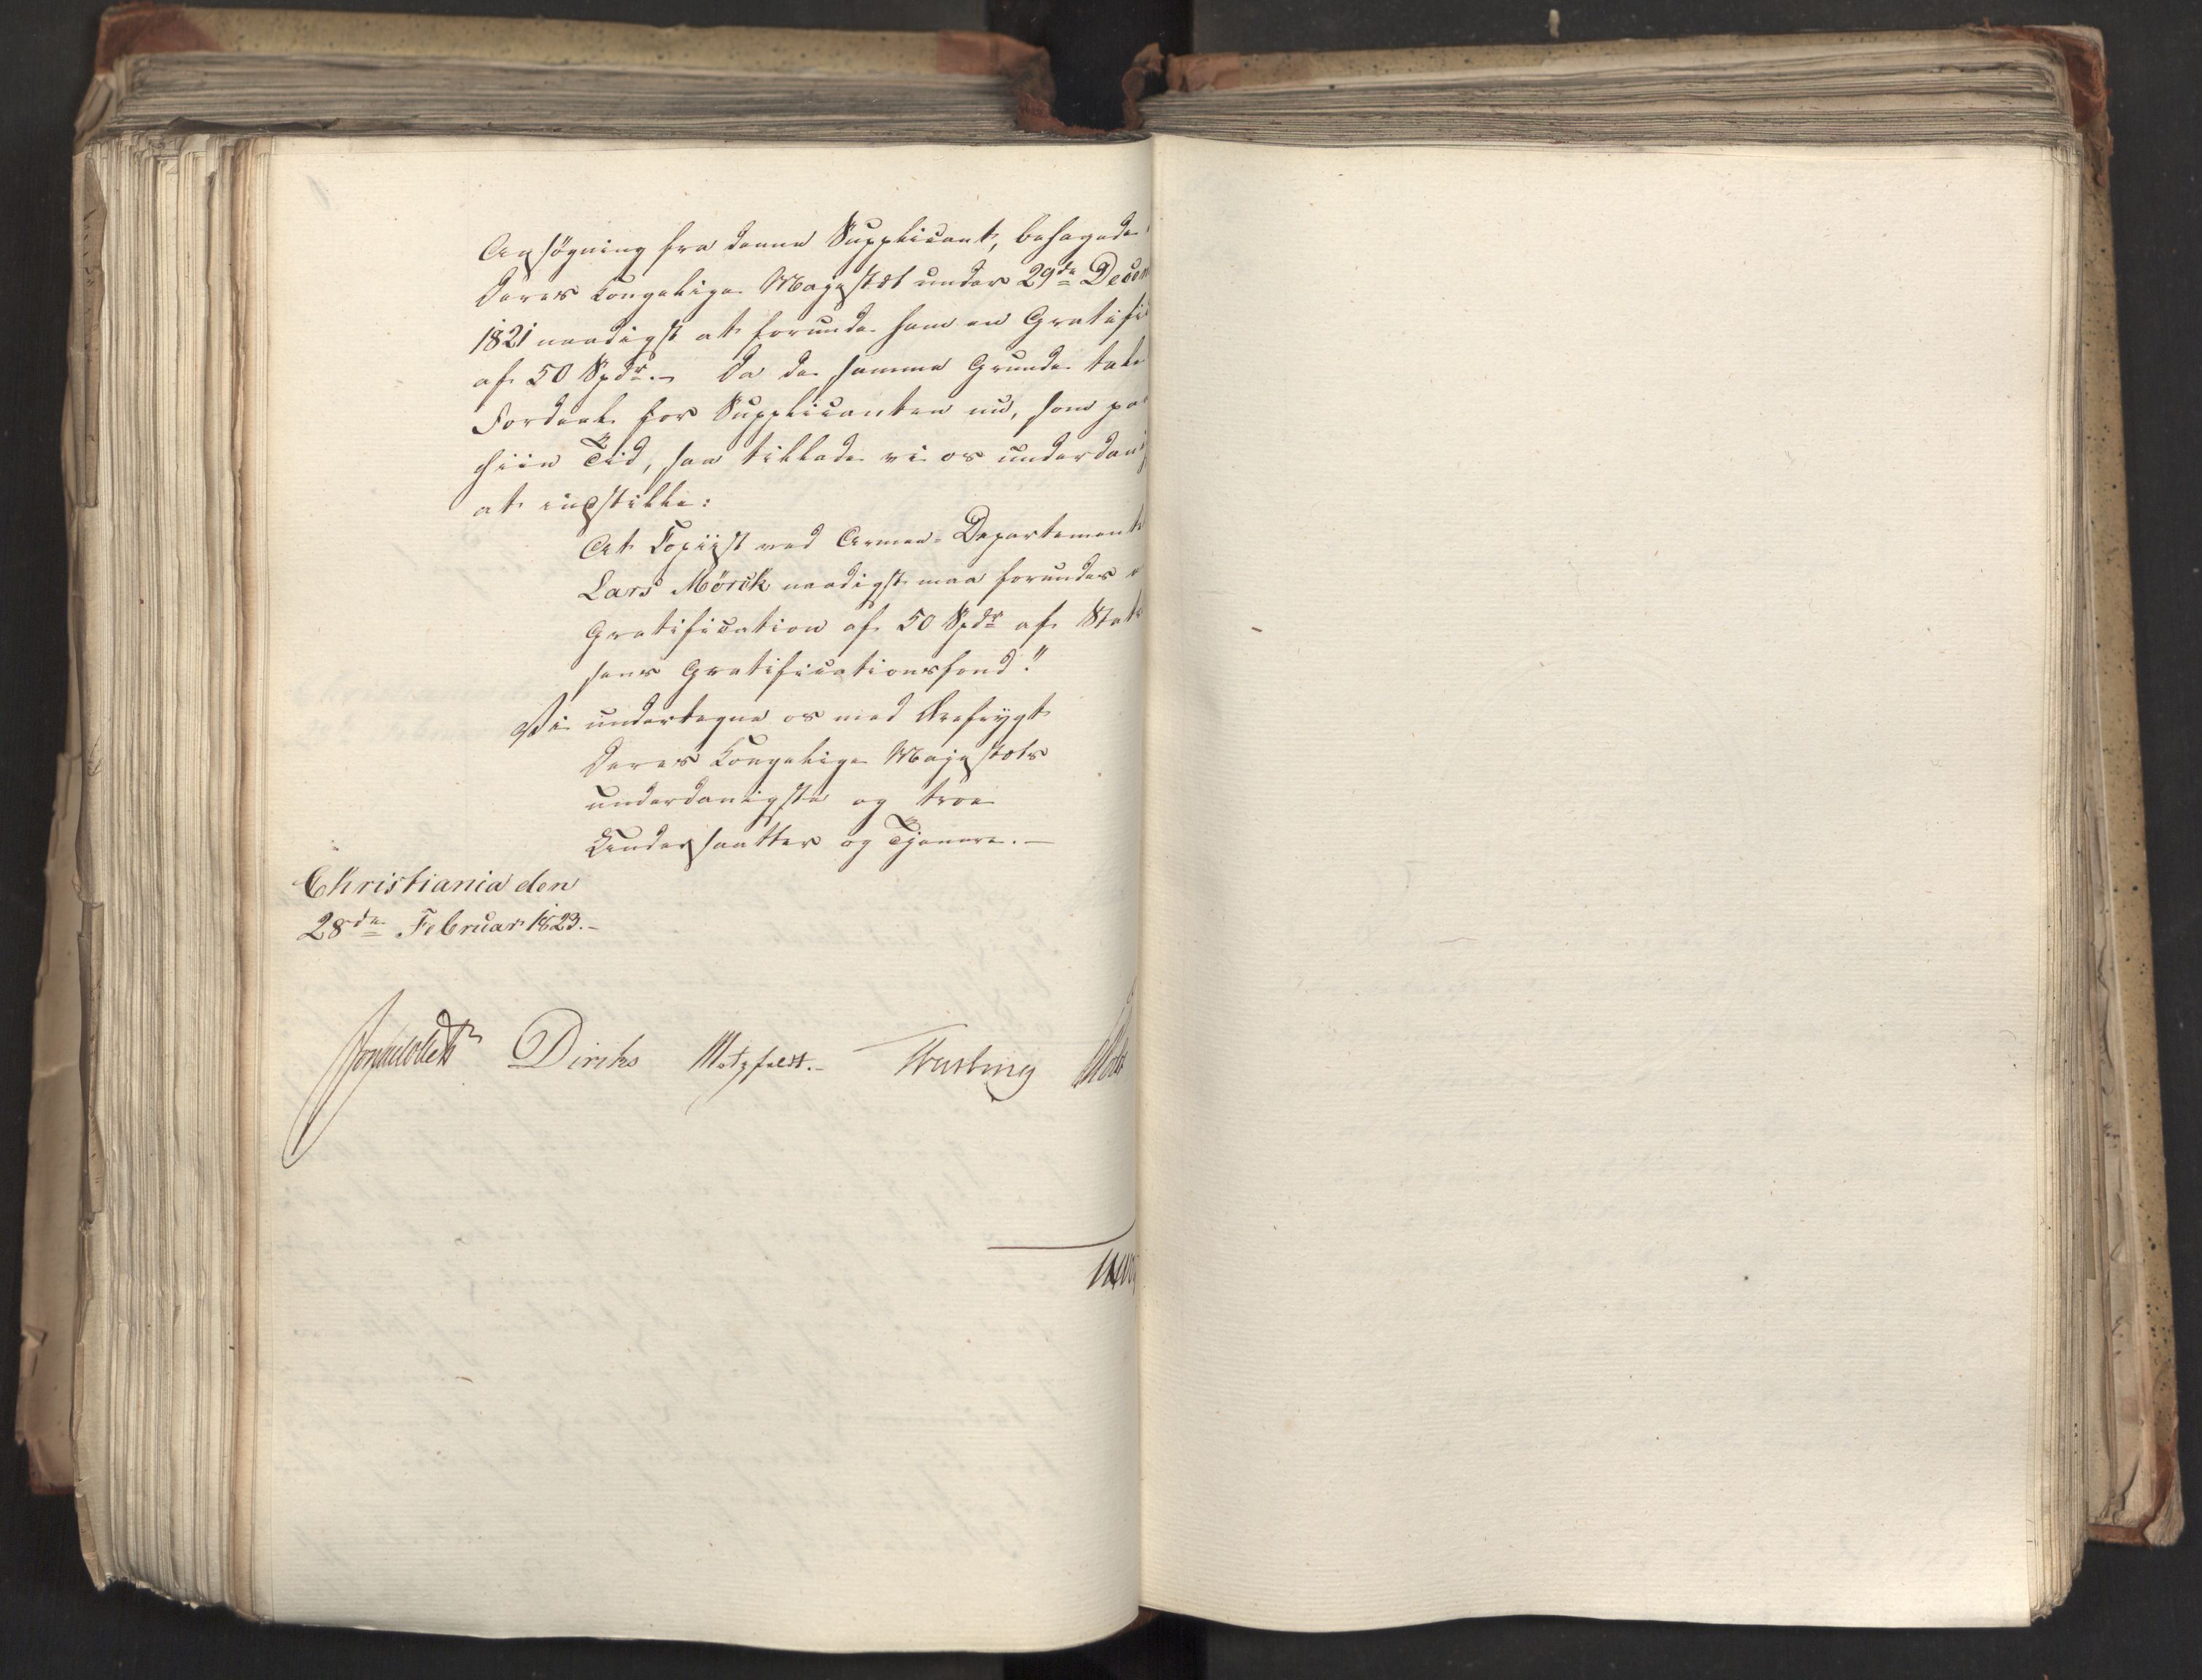 Ansøgning fra denne Supplicant, behagede
Deres Kongelige Majestæt under 29de Decem
1821 naadigst at forunde ham en Gratifi
af 50 Spdr. – Da de samme Grunde tale
Fordeel for Supplicanten nu, som paa
hiin Tid, saa tillade vi os underdani
at indstille:
At Copiist ved Armee-Departemente
Lars Mörck naadigst maa forundes
Gratification af 50 Spdr af Stat
sens Gratificationsfond."
Vi undertegne os med Ærefrygt
Deres Kongelige Majestæts
underdanigste og troe
Undersaatter og Tjenere. –
Christiania den
28de Februar 1823. –
Diriks Motzfeldt. –